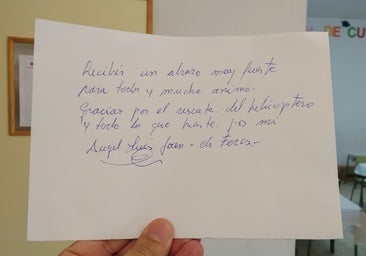 DE CU
Recibir un abrazo muy fuerte
para todos y mucho animo.
Gracias por el rescate del helicoptero
y todo lo que hiciste por mi
Angel Luis Jaen - de Feres.-